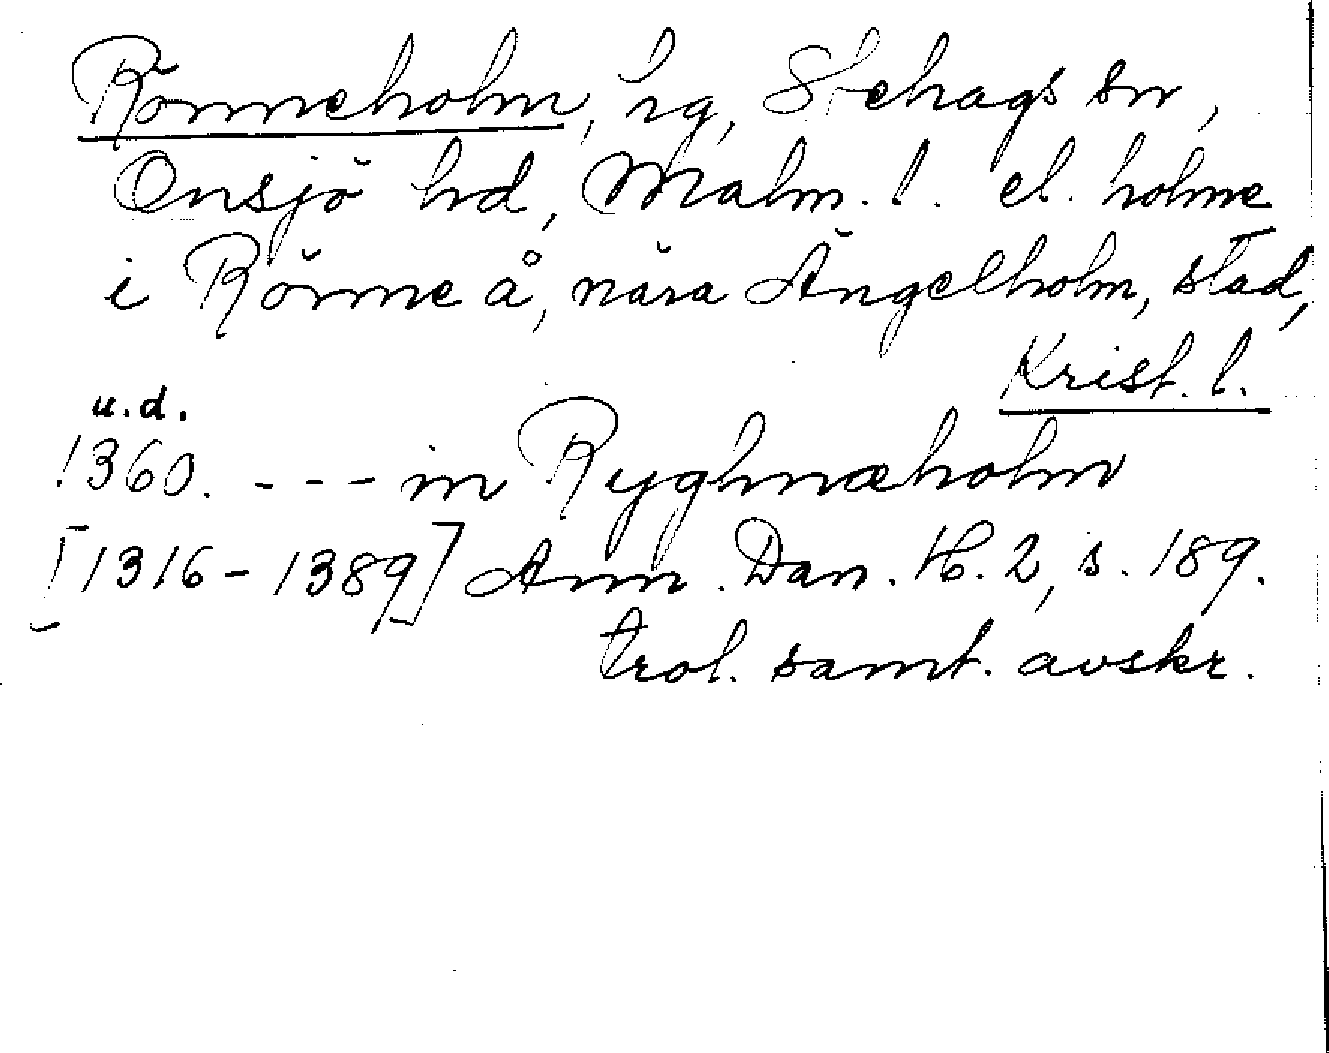 Rönneholm, hg, Stehags sn,
Onsjö hd, Malm. l. el. holme
i Rönne å, nära Ängelholm, stad,
Krist. l.
u.d.
1360. - - - in Ryghnæholm
[1316-1389] Ann. Dan. H. 2, s. 189.
trol. samt. avskr.